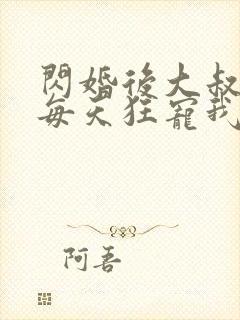 閃婚後大叔
每天狂寵我
阿吾